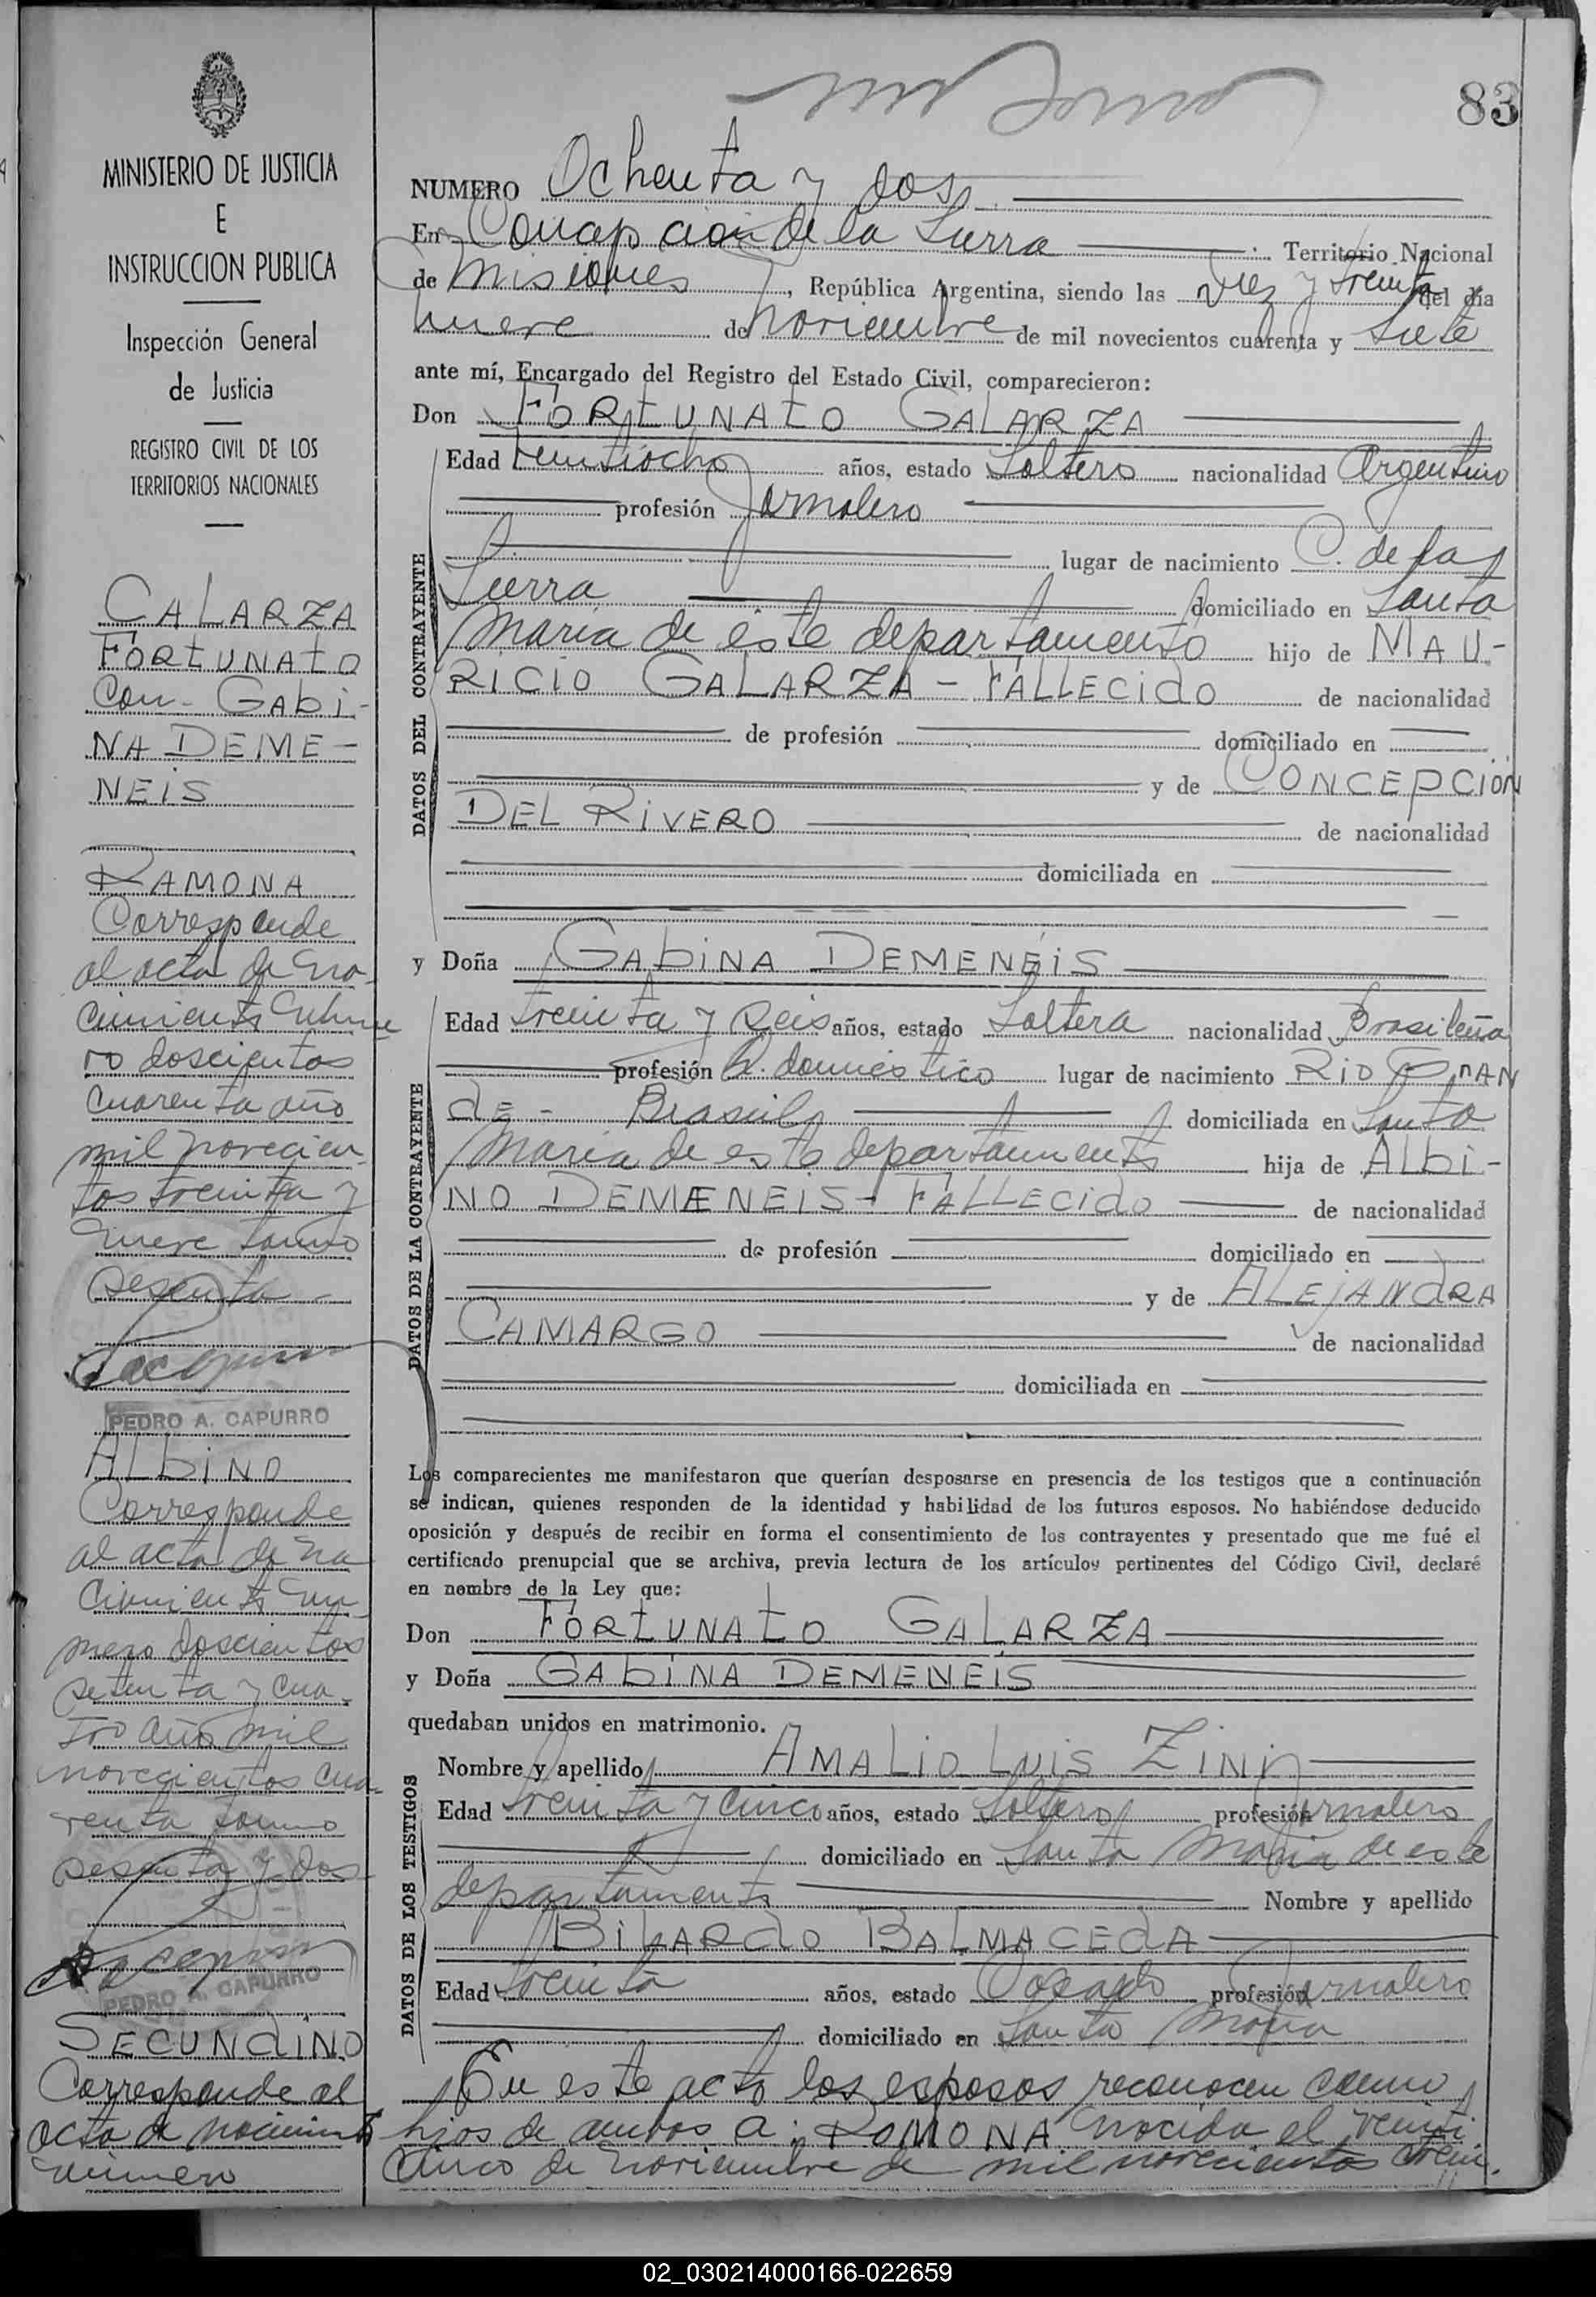 83
MINISTERIO DE JUSTICIA
E
INSTRUCCION PUBLICA
Inspección General
de Justicia
REGISTRO CIVIL DE LOS
TERRITORIOS NACIONALES
GALARZA
FORTUNATO
con - GABI-
NA DEME-
NEIS
RAMONA
Corresponde
al acta de na-
cimiento nume
ro doscientos
cuarenta año
mil novecien-
tos treinta y
nueve tomo
sesenta -
PEDRO A. CAPURRO
ALBINO
Corresponde
al acta de na
cimiento nu-
mero doscientos
setenta y cua-
tro año mil
novecientos cua-
renta tomo
sesenta y dos
PEDRO A. CAPURRO
SECUNDINO
Corresponde al
acta de nacimiento
numero
NUMERO Ochenta y dos
En Concepcion de la Sierra Territorio Nacional
de Misiones, República Argentina, siendo las diez y treinta del día
nueve de noviembre de mil novecientos cuarenta y siete
ante mí, Encargado del Registro del Estado Civil, comparecieron:
Don FORTUNATO GALARZA
DATOS DEL CONTRAYENTE
Edad veintiocho años, estado soltero nacionalidad Argentino
profesión Jornalero
lugar de nacimiento C. de la
Sierra domiciliado en Santa
María de este departamento hijo de MAU-
RICIO GALARZA - FALLECIDO de nacionalidad
de profesión domiciliado en
y de CONCEPCIÓN
DEL RIVERO de nacionalidad
domiciliada en
y Doña GABINA DEMENEIS
DATOS DE LA CONTRAYENTE
Edad treinta y seis años, estado Soltera nacionalidad Brasileña
profesión Q. domestico lugar de nacimiento RIO GRAN
DE - Brasil domiciliada en Santa
María de este departamento hija de ALBI-
NO DEMENEIS - FALLECIDO de nacionalidad
de profesión domiciliado en
y de ALEJANDRA
CAMARGO de nacionalidad
domiciliada en
Los comparecientes me manifestaron que querían desposarse en presencia de los testigos que a continuación
se indican, quienes responden de la identidad y habilidad de los futuros esposos. No habiéndose deducido
oposición y después de recibir en forma el consentimiento de los contrayentes y presentado que me fué el
certificado prenupcial que se archiva, previa lectura de los artículos pertinentes del Código Civil, declaré
en nombre de la Ley que:
Don FORTUNATO GALARZA
y Doña GABINA DEMENEIS
quedaban unidos en matrimonio.
DATOS DE LOS TESTIGOS
Nombre y apellido AMALIO LUIS ZINI
Edad treinta y cinco años, estado Soltero profesión Jornalero
domiciliado en Santa María de este
departamento Nombre y apellido
BILARDO BALMACEDA
Edad treinta años, estado Casado profesión Jornalero
domiciliado en Santa María
En este acto los esposos reconocen como
hijos de ambos a: RAMONA nacida el veinti
cinco de noviembre de mil novecientos trein-
02_030214000166-022659